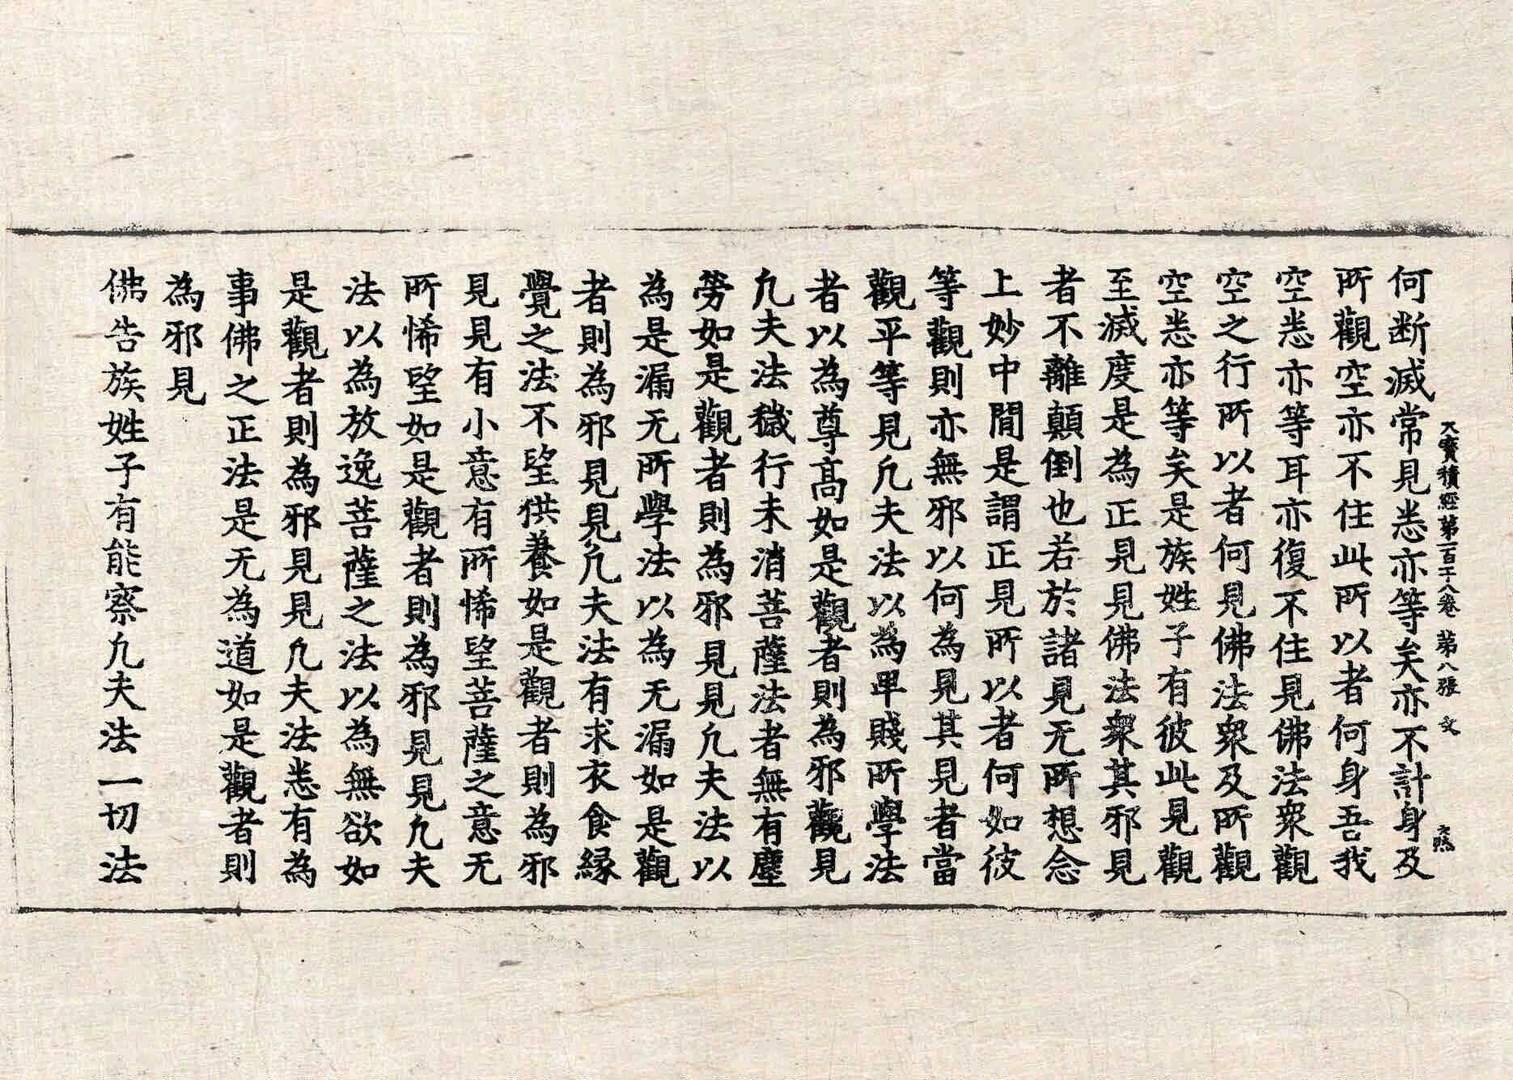 大寶積經第一百十八卷 第八張 文
何断滅常見悉亦等矣亦不計身及
所觀空亦不住此所以者何身吾我
空悉亦等耳亦復不住見佛法衆觀
空之行所以者何見佛法衆及所觀
空悉亦等矣是族姓子有彼此見觀
至滅度是為正見見佛法衆其邪見
者不離顛倒也若於諸見无所想念
上妙中間是謂正見所以者何如彼
等觀則亦無邪以何為見其見者當
觀平等見凢夫法以為卑賤所學法
者以為尊高如是觀者則為邪觀見
凢夫法穢行未消菩薩法者無有塵
勞如是觀者則為邪見見凢夫法以
為是漏无所學法以為无漏如是觀
者則為邪見見凢夫法有求衣食緣
覺之法不望供養如是觀者則為邪
見見有小意有所悕望菩薩之意无
所悕望如是觀者則為邪見見凢夫
法以為放逸菩薩之法以為無欲如
是觀者則為邪見見凢夫法悉有為
事佛之正法是无為道如是觀者則
為邪見
佛告族姓子有能察凢夫法一切法